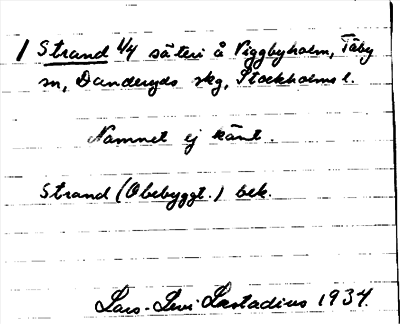 1 Strand 1/4 säteri å Viggbyholm, Täby
sn, Danderyds skg, Stockholms l.
Namnet ej känt.
Strand (Obebyggt.) bek.
Lars-Levi Læstadius 1934.